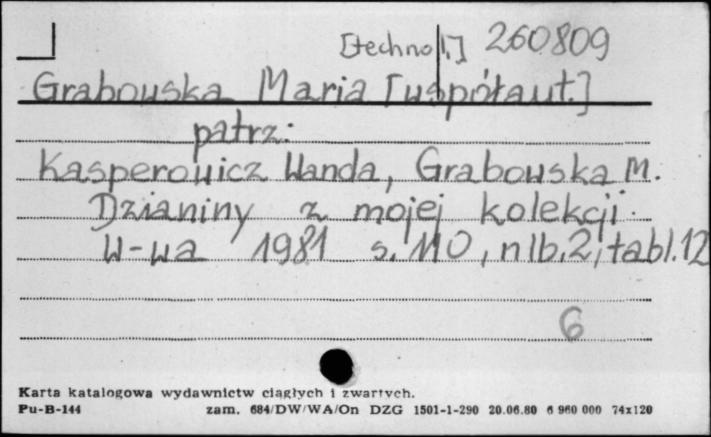 [technol.] 260809
Grabowska Maria [współaut.]
patrz:
Kasperowicz Wanda, Grabowska M.
Dzianiny z mojej kolekcji.
W-wa 1981 s. 110, nlb. 2, tabl. 12
6
Karta katalogowa wydawnictw ciągłych i zwartych.
Pu-B-144 zam. 684/DW/WA/On DZG 1501-1-290 20.06.80 6 960 000 74x120